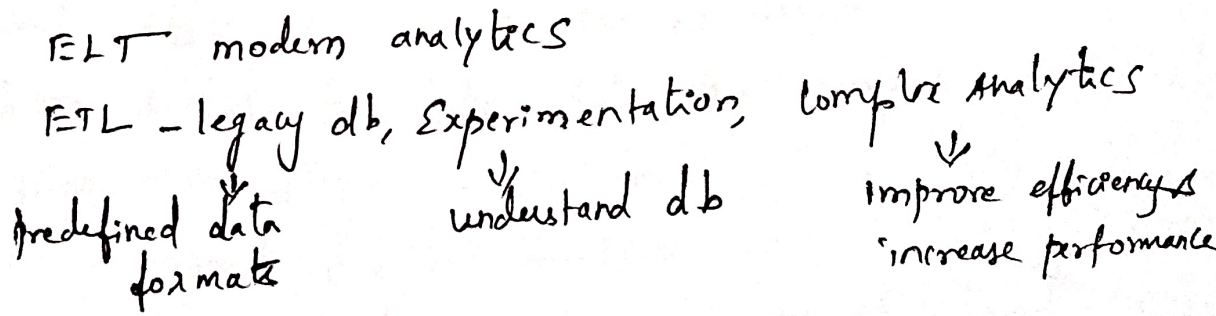 ELT modern analytics
ETL - legacy db, Experimentation, Complex Analytics
predefined data formats
understand db
improve efficiency &
increase performance